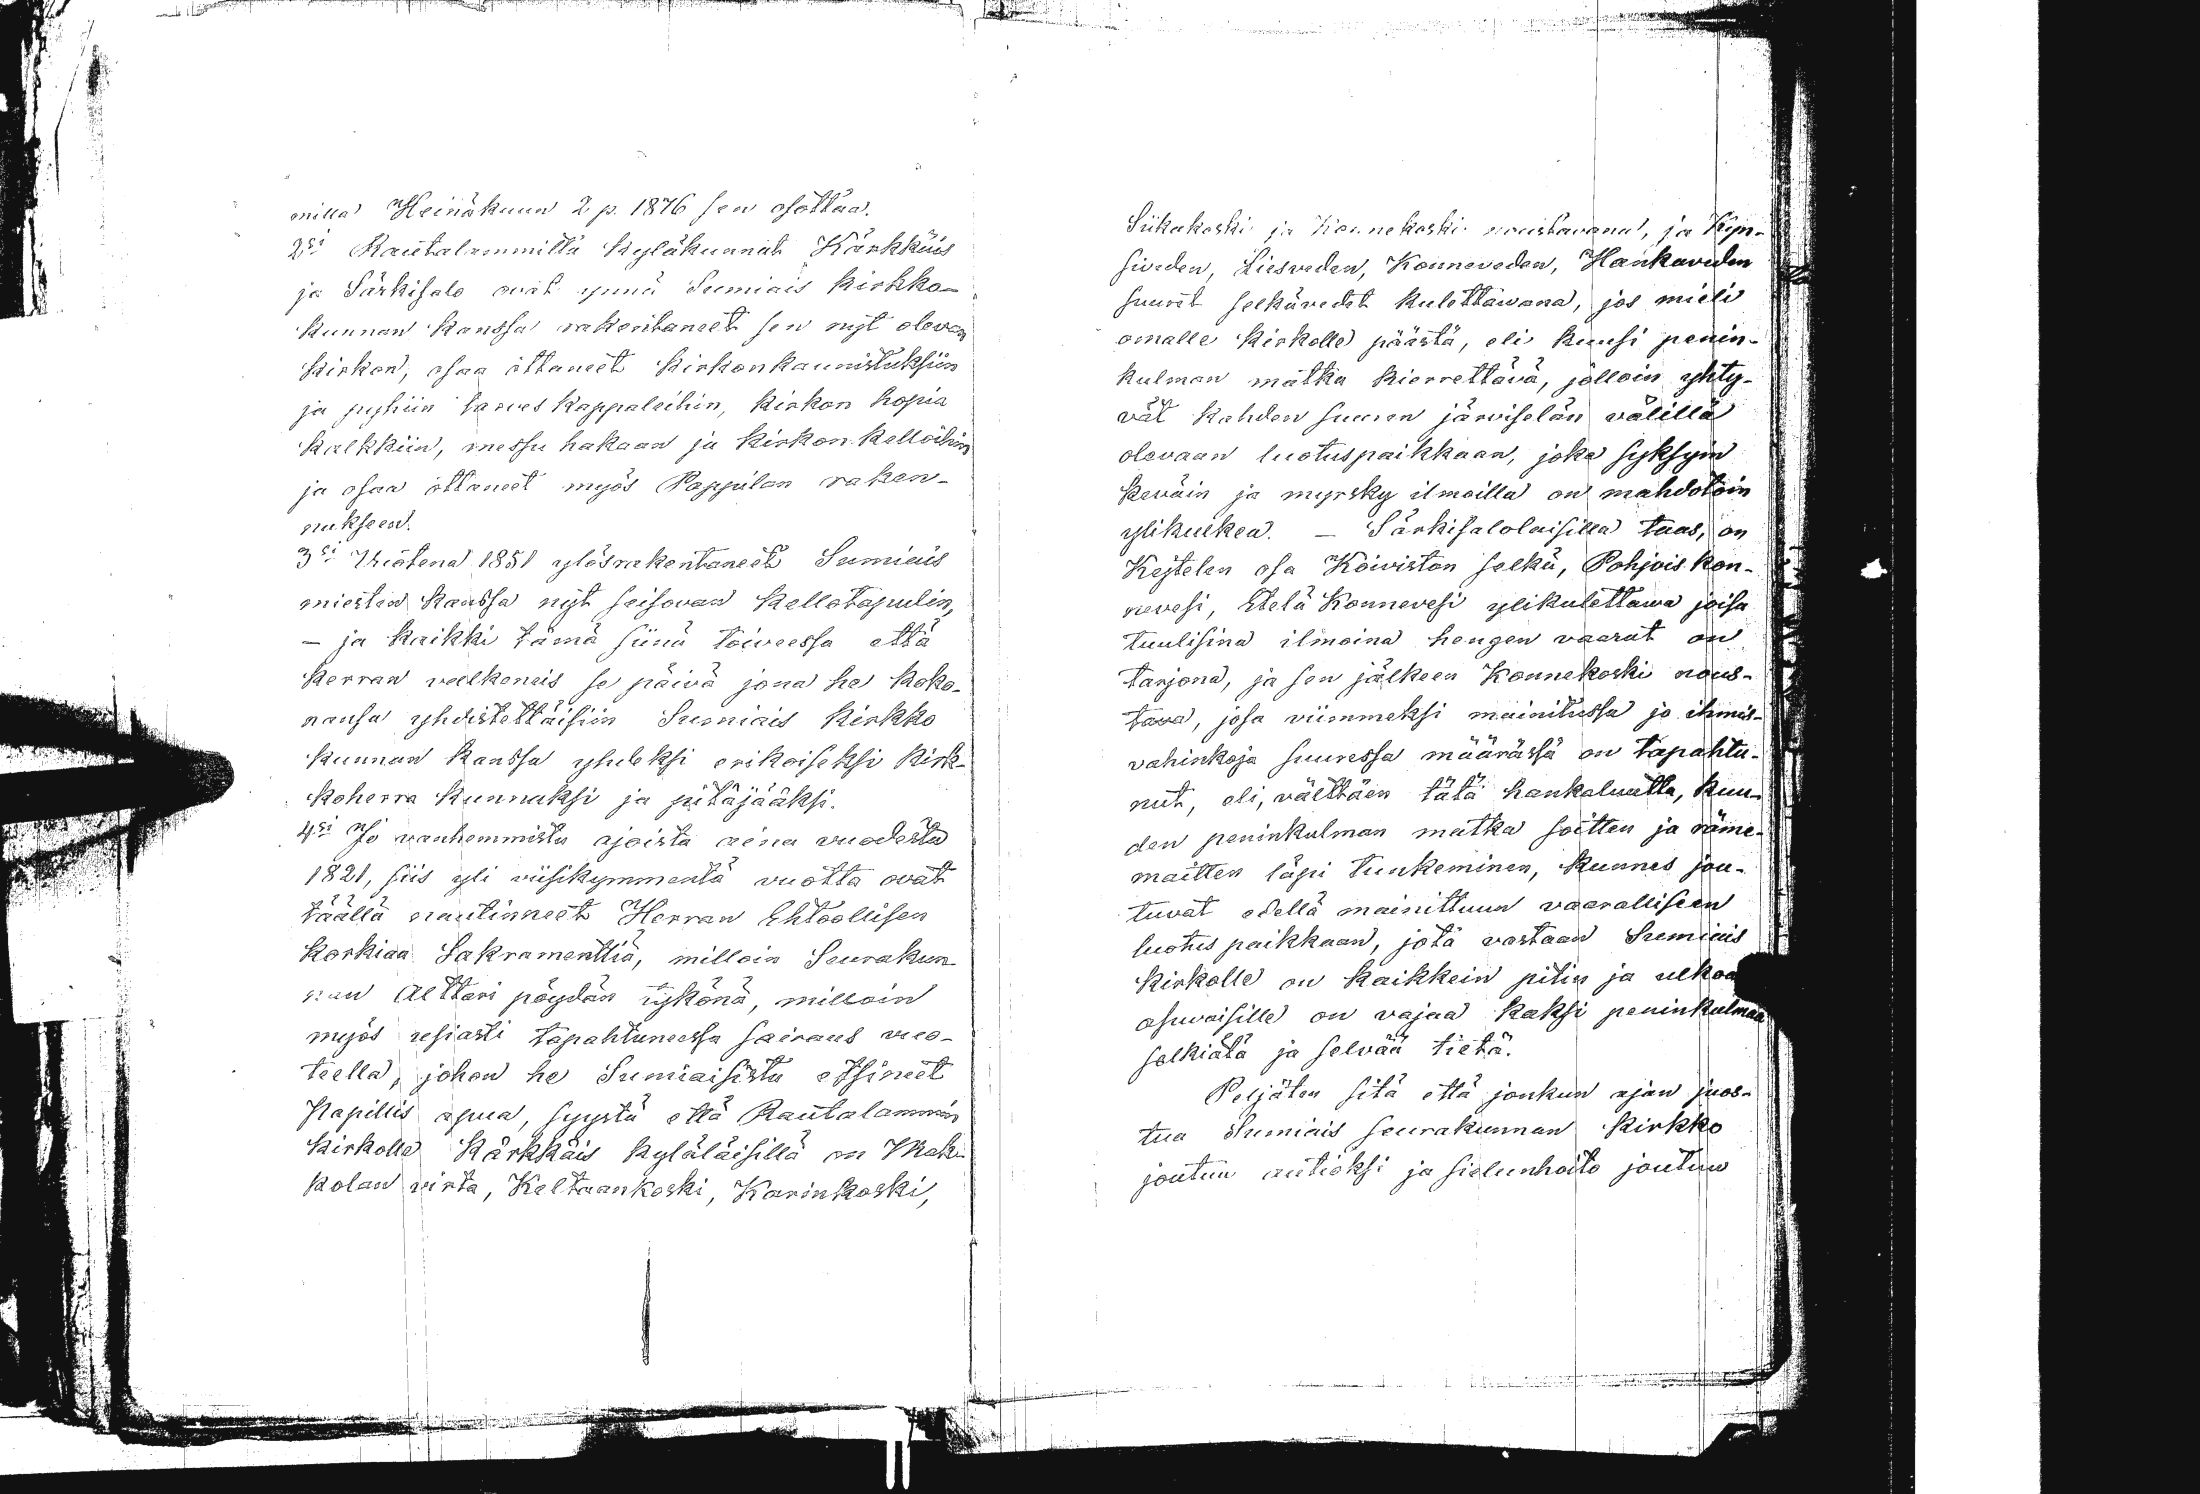 milla Heinäkuun 2 p. 1876 sen osottaa.
2si Rautalammilta kyläkunnat Kärkkäis
ja Särkisalo ovat ynnä Sumiais kirkko-
kunnan kanssa rakentaneet sen nyt olevan
kirkon, osaa ottaneet kirkonkaunistuksiin
ja pyhiin tarves kappaleihin, kirkon hopia
kalkkiin, messu hakaan ja kirkon kelloihin
ja osaa ottaneet myös Pappilan raken-
nukseen.
3si Vuotena 1851 ylösrakentaneet Sumiais
miesten kanssa nyt seisovan kellotapulin,
– ja kaikki tämä siinä toiveessa että
kerran valkeneis se päivä jona he koko-
nansa yhdistettäisiin Sumiais kirkko
kunnan kanssa yhdeksi erikoiseksi kirk-
koherra kunnaksi ja pitäjääksi.
4si Jo vanhemmista ajoista aina vuodesta
1821, siis yli viisikymmentä vuotta ovat
täällä nautinneet Herran Ehtoollisen
korkiaa Sakramenttia, milloin Seurakun-
nan Alttari pöydän tykönä, milloin
myös usiasti tapahtuneessa sairaus vuo-
teella, johon he Sumiaisista etsineet
Papillis apua, syystä että Rautalammin
kirkolle Kärkkäis kyläläisillä on Mak-
kolan virta, Keltaankoski, Karinkoski,
Siikakoski ja Konnekoski noustavana, ja Kyn-
siveden, Liesveden, Konneveden, Hankaveden
suuret selkävedet kulettavana, jos mieli
omalle kirkolle päästä, eli kuusi penin-
kulman matka kierrettävä, jolloin yhty-
vät kahden suuren järviselän välillä
olevaan luotuspaikkaan, joka syksyin
keväin ja myrsky ilmoilla on mahdotoin
ylikulkea. – Särkisalolaisilla taas, on
Keitelen osa Koiviston selkä, Pohjois kon-
nevesi, Etelä Konnevesi ylikulettawa joisa
tuulisina ilmoina hengen vaarat on
tarjona, ja sen jälkeen Konnekoski nous-
tava, josa viimmeksi mainitussa jo ihmis-
vahinkoja suuressa määrässä on tapahtu-
nut, eli, välttäen tätä hankaluutta, kuu-
den peninkulman matka soitten ja räme-
maitten läpi tunkeminen, kunnes jou-
tuvat edellä mainittuun vaaralliseen
luotus paikkaan, jota vastaan Sumiais
kirkolle on kaikkein pitin ja ulkoa
asuvaisille on vajaa kaksi peninkulmaa
selkiätä ja selvää tietä.
Peljäten sitä että jonkun ajan juos-
tua Sumiais seurakunnan kirkko
joutuu autioksi ja sielunhoito joutuu